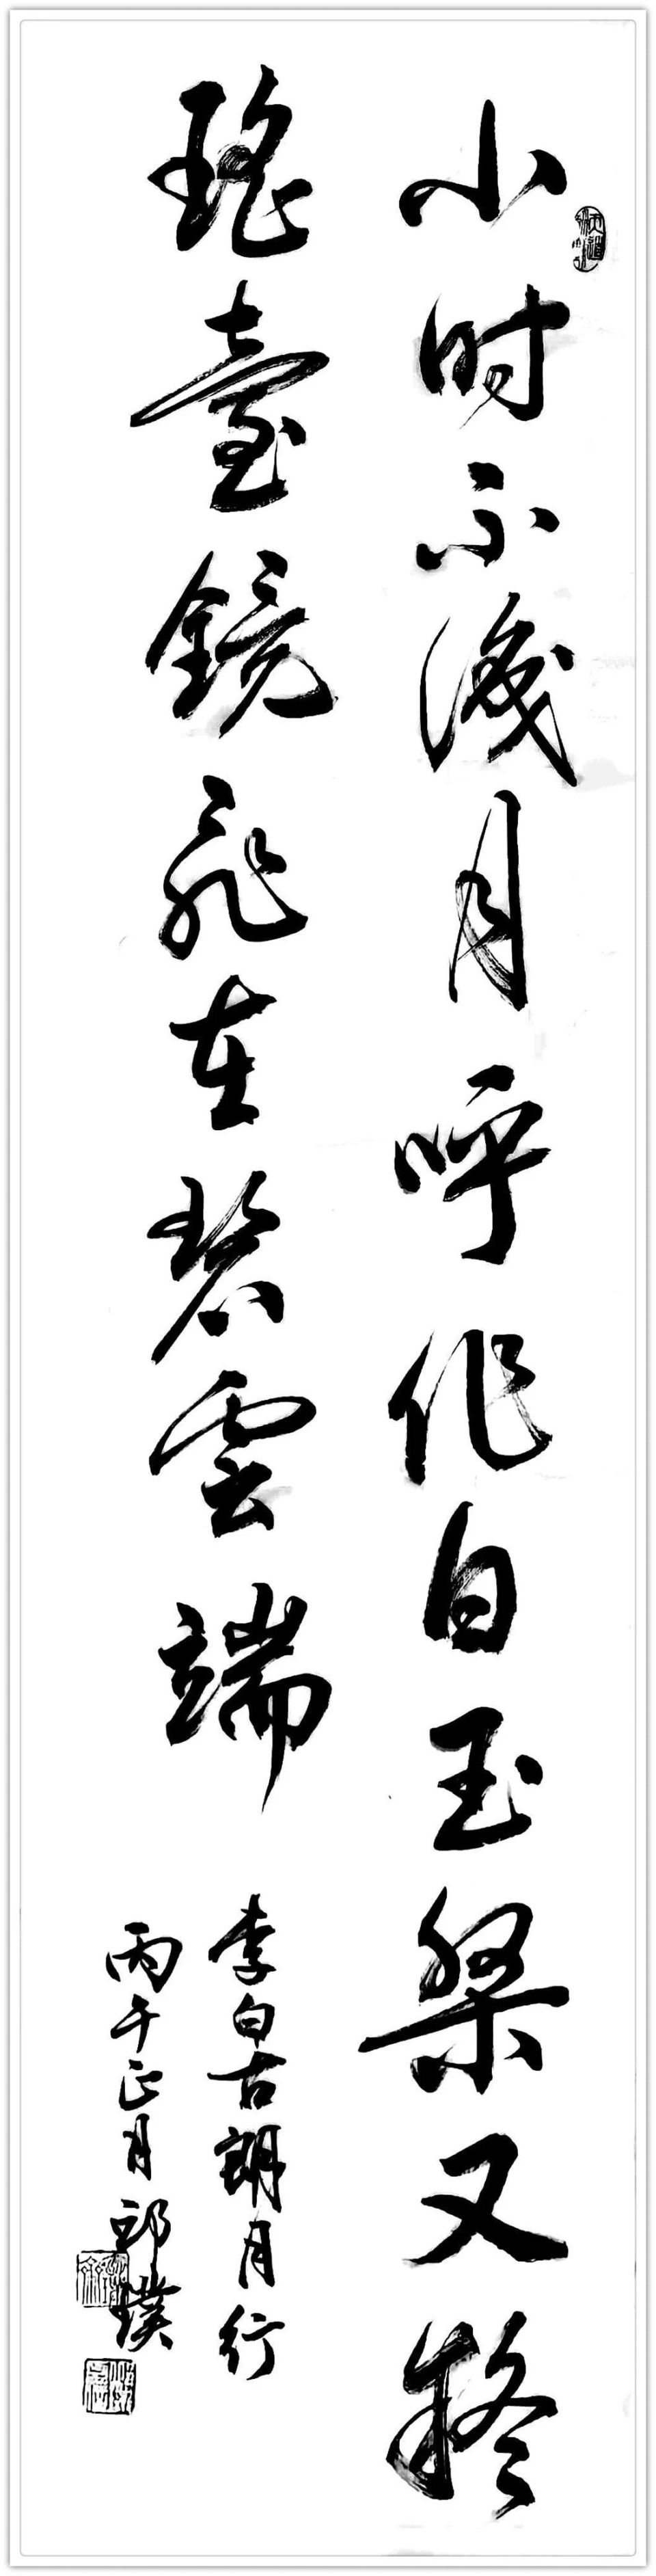 小时不識月呼作白玉槃又疑
瑤臺鏡飛在碧雲端
李白古朗月行
丙午正月邱璞